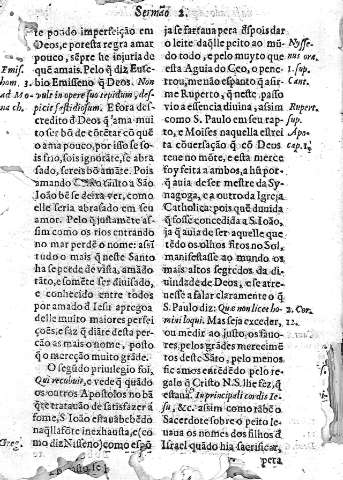 Sermão 2.
te pondo imperfeição em
Deos, e por esta regra amar
pouco, sẽpre he injuria de
quẽ amais. Pelo q̃ diz Euse-
bio Emisseno q̃ Deos. Non
ille in opere suo tepidum, des-
picit fastidiosum. E fora des-
credito d'Deos q̃ ama mui-
to ser bõ de cõtẽtar cõ quẽ
o ama pouco, por isso se fo-
is frio, fois ignorãte, se abra
sado, sereis bõ amãte. Pois
amando Christo tãto a São
Ioão bẽ se deixa ver, como
elle seria abrasado em seu
amor. Pelo q̃ justamẽte as-
sim como os rios entrando
no mar perdẽ o nome: assi
tudo o mais q̃ neste Santo
ha se perde de vista, amãdo
rãto, e somẽte ser divisado,
e conhecido entre todos
por amado d'Iesu apregoa
delle muito maiores perfei
ções, e faz q̃ diãte desta per-
ção as mais o nome, posto
q̃ o merecção muito grãde.
O segũdo privilegio foi,
Qui recubuit, e vede q̃ quãdo
os outros Apostolos no bã-
quete tratavão de satisfazer á
fome, S. Ioão estava bebẽdo
naq̃lla fõte inexhausta, e (co
mo diz Nisseno) como espõ
Emiss.
hom. 3.
ad Mo-
nach.
Greg.
ja se fartava pera d'spois dar
o leite daq̃lle peito ao mũ-
do todo, e pelo muyto que
esta Aguia do Ceo, o pene-
trou, me não espanto q̃ afir-
me Ruperto, q̃ neste passo
vio a essencia divina, assim
como S. Paulo em seu rap-
to, e Moises naquella estrei
cõversação q̃ cõ Deos
teve no mõte, e esta merce
foy feita a ambos, a hũ por-
q̃ avia de ser mestre da Sy-
nagoga, e a outro da Igreja
Catholica: pois quẽ duvida
q̃ fosse concedida a S. Ioão,
ja q̃ avia de ser aquelle que
tẽdo os olhos fitos no Sol,
manifestasse ao mundo os
mais altos segredos da di-
vindade de Deos, e se atre-
vesse a falar claramente o q̃
S. Paulo diz: Quæ non licet ho-
mini loqui. Mas seja exceder,
ou medir ao justo, os favo-
res, pelos grãdes merecimẽ-
tos deste Sãto, pelo menos
fic amos entẽdẽdo pelo re-
galo q̃ Christo N. S. lhe fez, q̃
estava In principali cordis Ie-
su, &c. assim como tãbẽ o
Sacerdote sobre o peito le-
vava os nomes dos filhos d'
Israel quãdo hia sacrificar,
pera
Nysse-
nus ora.
1. sup.
Cant.
Rupert.
sup. Apo-
cap. 1.
2. Cor.
12.